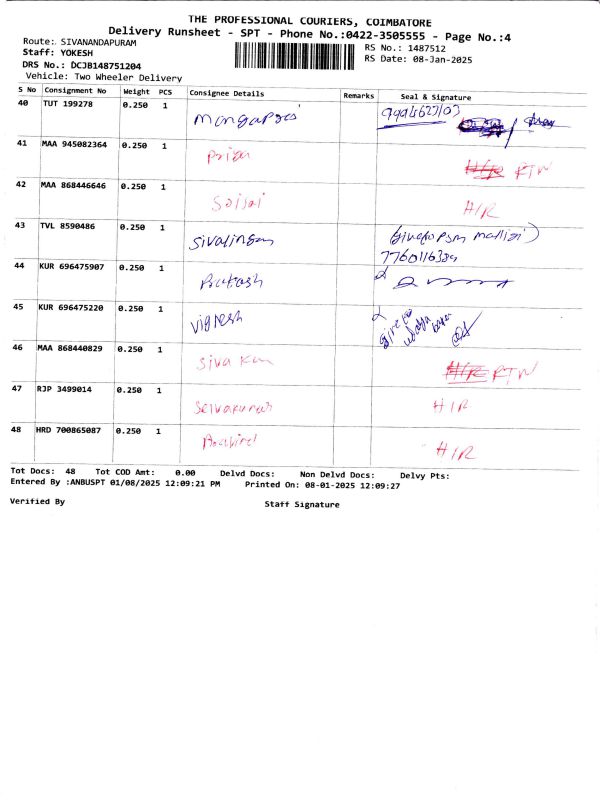 THE PROFESSIONAL COURIERS, COIMBATORE
Delivery Runsheet - SPT - Phone No.:0422-3505555 - Page No.:4
Route: SIVANANDAPURAM
Staff: YOKESH
DRS No.: DCJB148751204
Vehicle: Two Wheeler Delivery
RS No.: 1487512
RS Date: 08-Jan-2025
S No Consignment No Weight PCS Consignee Details Remarks Seal & Signature
40 TUT 199278 0.250 1
41 MAA 945082364 0.250 1 H/R RTW
42 MAA 868446646 0.250 1 Saisai H/R
43 TVL 8590486 0.250 1 Sivalingam
44 KUR 696475907 0.250 1 Prakash
45 KUR 696475220 0.250 1 Vignesh
46 MAA 868440829 0.250 1 Siva H/R RTW
47 RJP 3499014 0.250 1 Selvakumar H/R
48 HRD 700865087 0.250 1 H/R
Tot Docs: 48 Tot COD Amt: 0.00 Delvd Docs: Non Delvd Docs: Delvy Pts:
Entered By :ANBUSPT 01/08/2025 12:09:21 PM Printed On: 08-01-2025 12:09:27
Verified By Staff Signature